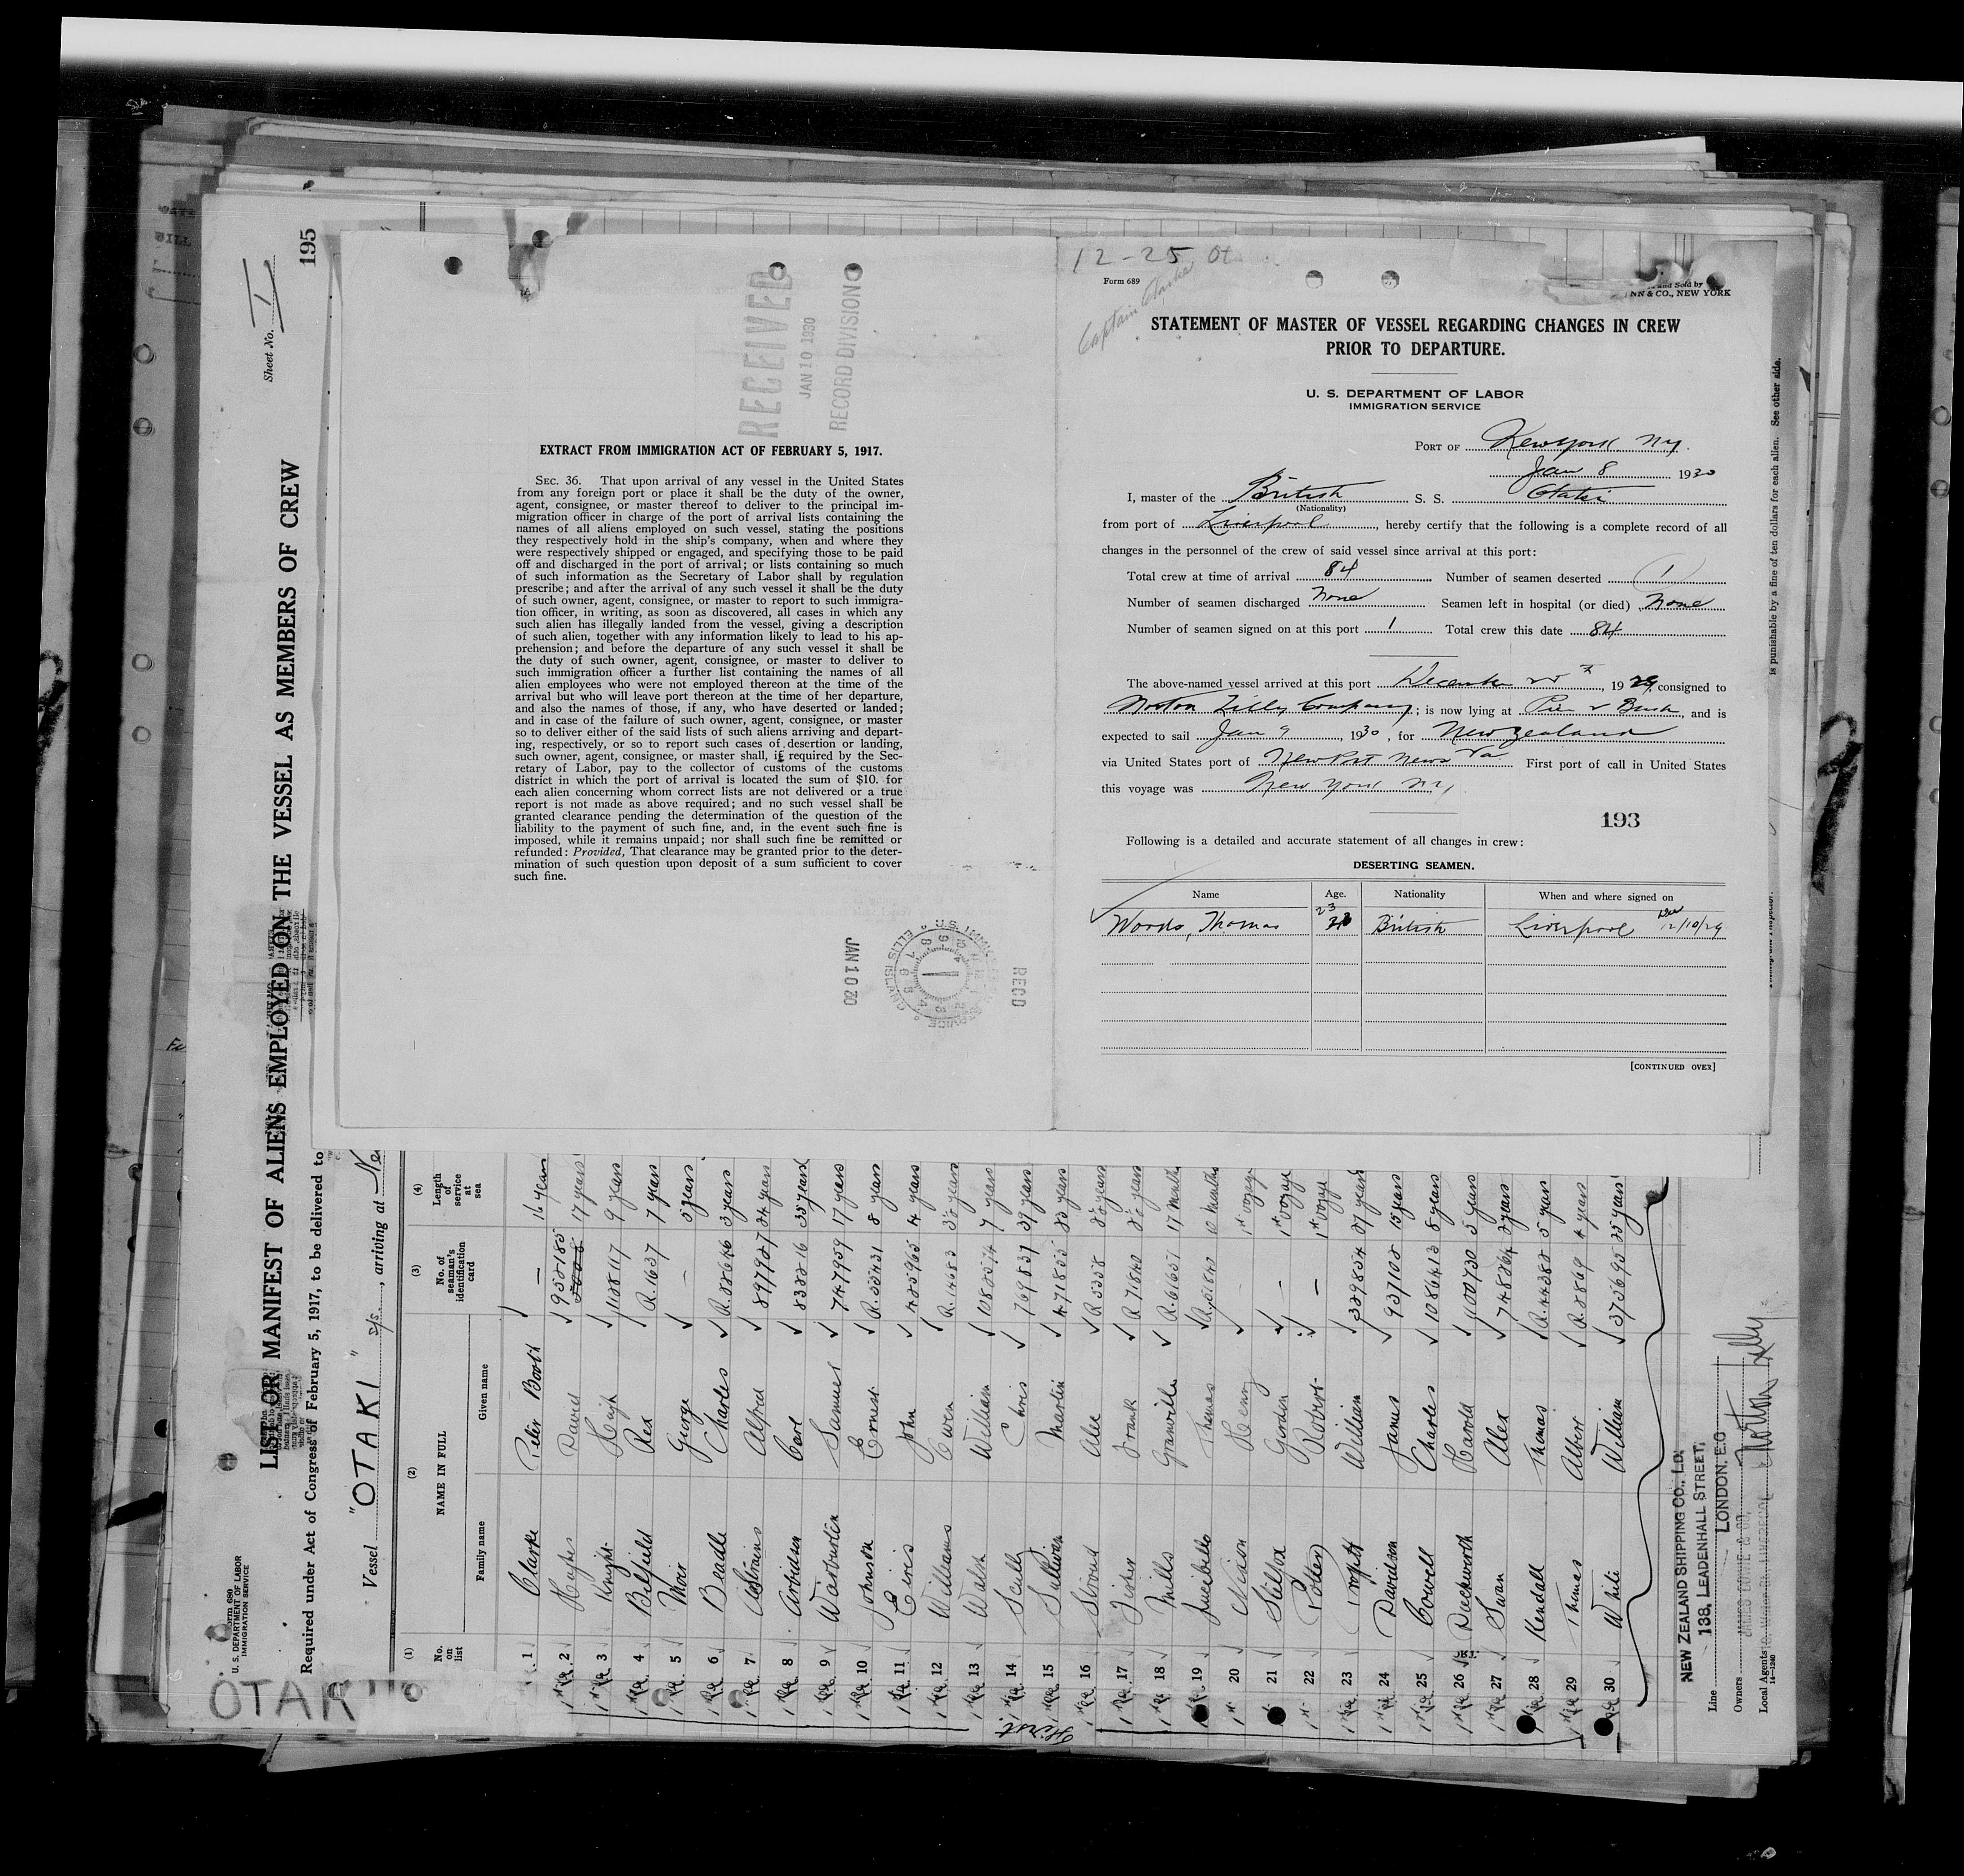 195
Sheet No. 1
LIST OR MANIFEST OF ALIENS EMPLOYED ON THE VESSEL AS MEMBERS OF CREW
Required under Act of Congress of February 5, 1917, to be delivered to
U. S. DEPARTMENT OF LABOR
IMMIGRATION SERVICE
Vessel "OTAKI" s/s., arriving at
OTAKI
RECEIVED
JAN 10 1930
RECORD DIVISION
EXTRACT FROM IMMIGRATION ACT OF FEBRUARY 5, 1917.
SEC. 36. That upon arrival of any vessel in the United States
from any foreign port or place it shall be the duty of the owner,
agent, consignee, or master thereof to deliver to the principal im-
migration officer in charge of the port of arrival lists containing the
names of all aliens employed on such vessel, stating the positions
they respectively hold in the ship's company, when and where they
were respectively shipped or engaged, and specifying those to be paid
off and discharged in the port of arrival; or lists containing so much
of such information as the Secretary of Labor shall by regulation
prescribe; and after the arrival of any such vessel it shall be the duty
of such owner, agent, consignee, or master to report to such immigra-
tion officer, in writing, as soon as discovered, all cases in which any
such alien has illegally landed from the vessel, giving a description
of such alien, together with any information likely to lead to his ap-
prehension; and before the departure of any such vessel it shall be
the duty of such owner, agent, consignee, or master to deliver to
such immigration officer a further list containing the names of all
alien employees who were not employed thereon at the time of the
arrival but who will leave port thereon at the time of her departure,
and also the names of those, if any, who have deserted or landed;
and in case of the failure of such owner, agent, consignee, or master
so to deliver either of the said lists of such aliens arriving and depart-
ing, respectively, or so to report such cases of desertion or landing,
such owner, agent, consignee, or master shall, if required by the Sec-
retary of Labor, pay to the collector of customs of the customs
district in which the port of arrival is located the sum of $10 for
each alien concerning whom correct lists are not delivered or a true
report is not made as above required; and no such vessel shall be
granted clearance pending the determination of the question of the
liability to the payment of such fine, and, in the event such fine is
imposed, while it remains unpaid; nor shall such fine be remitted or
refunded: Provided, That clearance may be granted prior to the deter-
mination of such question upon deposit of a sum sufficient to cover
such fine.
JAN 10 30
RECD
12-25 Ot
Captain Clarke
Form 689
and Sold by
NN & CO., NEW YORK
STATEMENT OF MASTER OF VESSEL REGARDING CHANGES IN CREW
PRIOR TO DEPARTURE.
U. S. DEPARTMENT OF LABOR
IMMIGRATION SERVICE
PORT OF New York. NY.
Jan 8 1930
I, master of the British S. S. Otaki
(Nationality)
from port of Liverpool, hereby certify that the following is a complete record of all
changes in the personnel of the crew of said vessel since arrival at this port:
Total crew at time of arrival 84 Number of seamen deserted 1
Number of seamen discharged None Seamen left in hospital (or died) None
Number of seamen signed on at this port 1 Total crew this date 84
The above-named vessel arrived at this port December, 1929 consigned to
Norton Lilly Company; is now lying at Pier 2 Bush, and is
expected to sail Jan 9, 1930, for New Zealand
via United States port of Newport News Va First port of call in United States
this voyage was New York NY
193
Following is a detailed and accurate statement of all changes in crew:
DESERTING SEAMEN.
Name Age. Nationality When and where signed on
Woods, Thomas 23 British Liverpool 12/10/29
[CONTINUED OVER]
is punishable by a fine of ten dollars for each alien. See other side.
(1) (2) (3) (4)
No. on list NAME IN FULL No. of seaman's identification card Length of service at sea
Family name Given name
1 Clarke Peter Booth — 16 years
2 Hughes David 17 years
3 Knight Hugh 9 years
4 Belfield Rex R.1637 7 years
5 Moir George — 5 years
6 Beadle Charles 3 years
7 Alfred 897927 34 years
8 Carl 35 years
9 Warburton Samuel 747959 17 years
10 Johnson Ernest R.55431 8 years
11 John 425965 4 years
12 Williams Owen
13 Walsh William 7 years
14 Scully Chris 769837 39 years
15 Sullivan Martin
16 Stroud Alec R 5358
17 Fisher Frank R 71840
18 Mills Granville R.61651
19 Thomas
20 Nixon Henry 1st voyage
21 Silfox Gordon — 1st voyage
22 Potter Robert — 1st voyage
23 William 329854 27 years
24 Davidson James 15 years
25 Cowell Charles 1086413 8 years
26 Duckworth Harold 1100730 5 years
27 Swan Alex 2 years
28 Kendall Thomas R.44382 5 years
29 Thomas Albert R 2869 4 years
30 White William 373695 25 years
First
Line NEW ZEALAND SHIPPING CO., LD.
138, LEADENHALL STREET,
LONDON. E.C
Owners
Local Agents Norton Lilly
14—1240